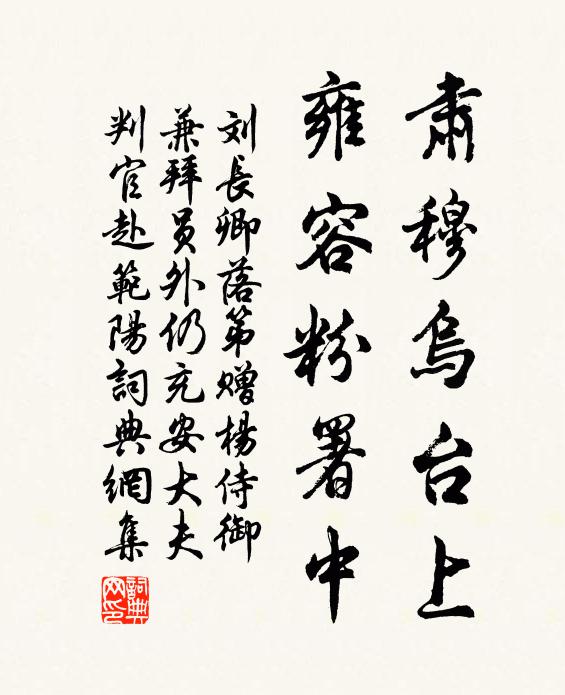 肅穆烏台上
雍容粉署中
刘長卿落第赠楊侍御
兼拜員外仍充安大夫
判官赴範陽詞典網集
詞典網印